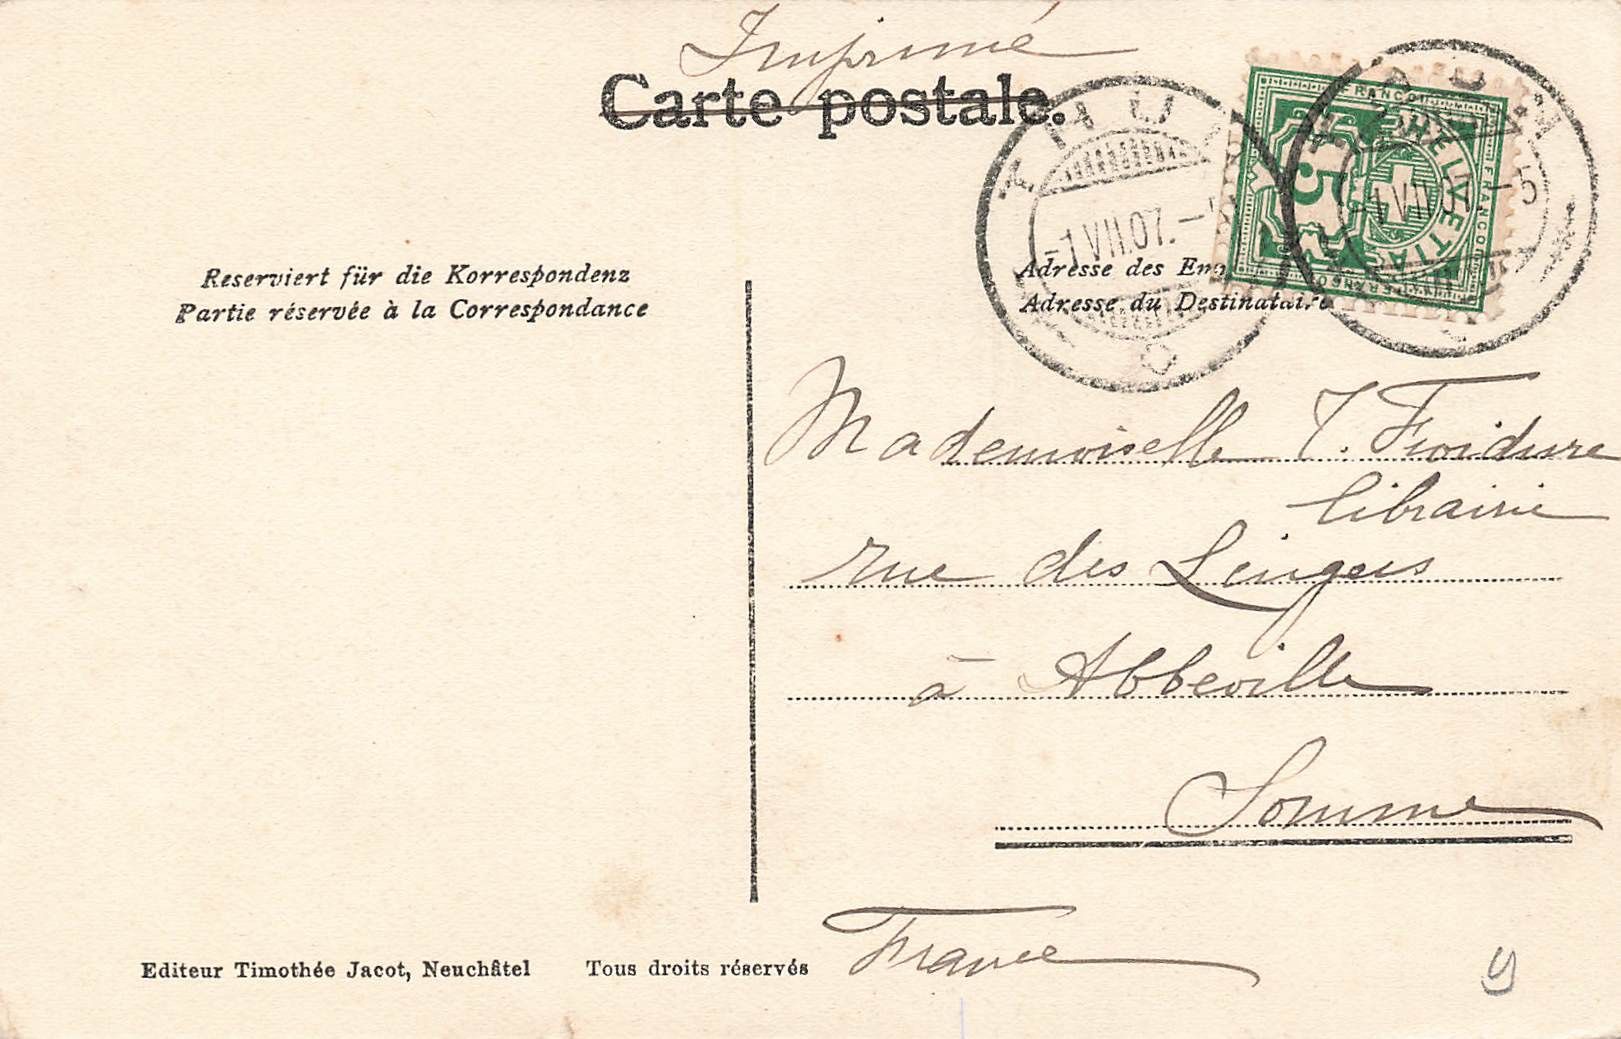 Imprimé
Carte postale.
FRANCO
HELVETIA
5
THUN
-1 VII.07.-
-1 VII.07.-5
Reserviert für die Korrespondenz
Partie réservée à la Correspondance
Adresse des Em
Adresse du Destinataire
Mademoiselle J. Froidure
librairie
rue des Lingers
à Abbeville
Somme
France
Editeur Timothée Jacot, Neuchâtel Tous droits réservés